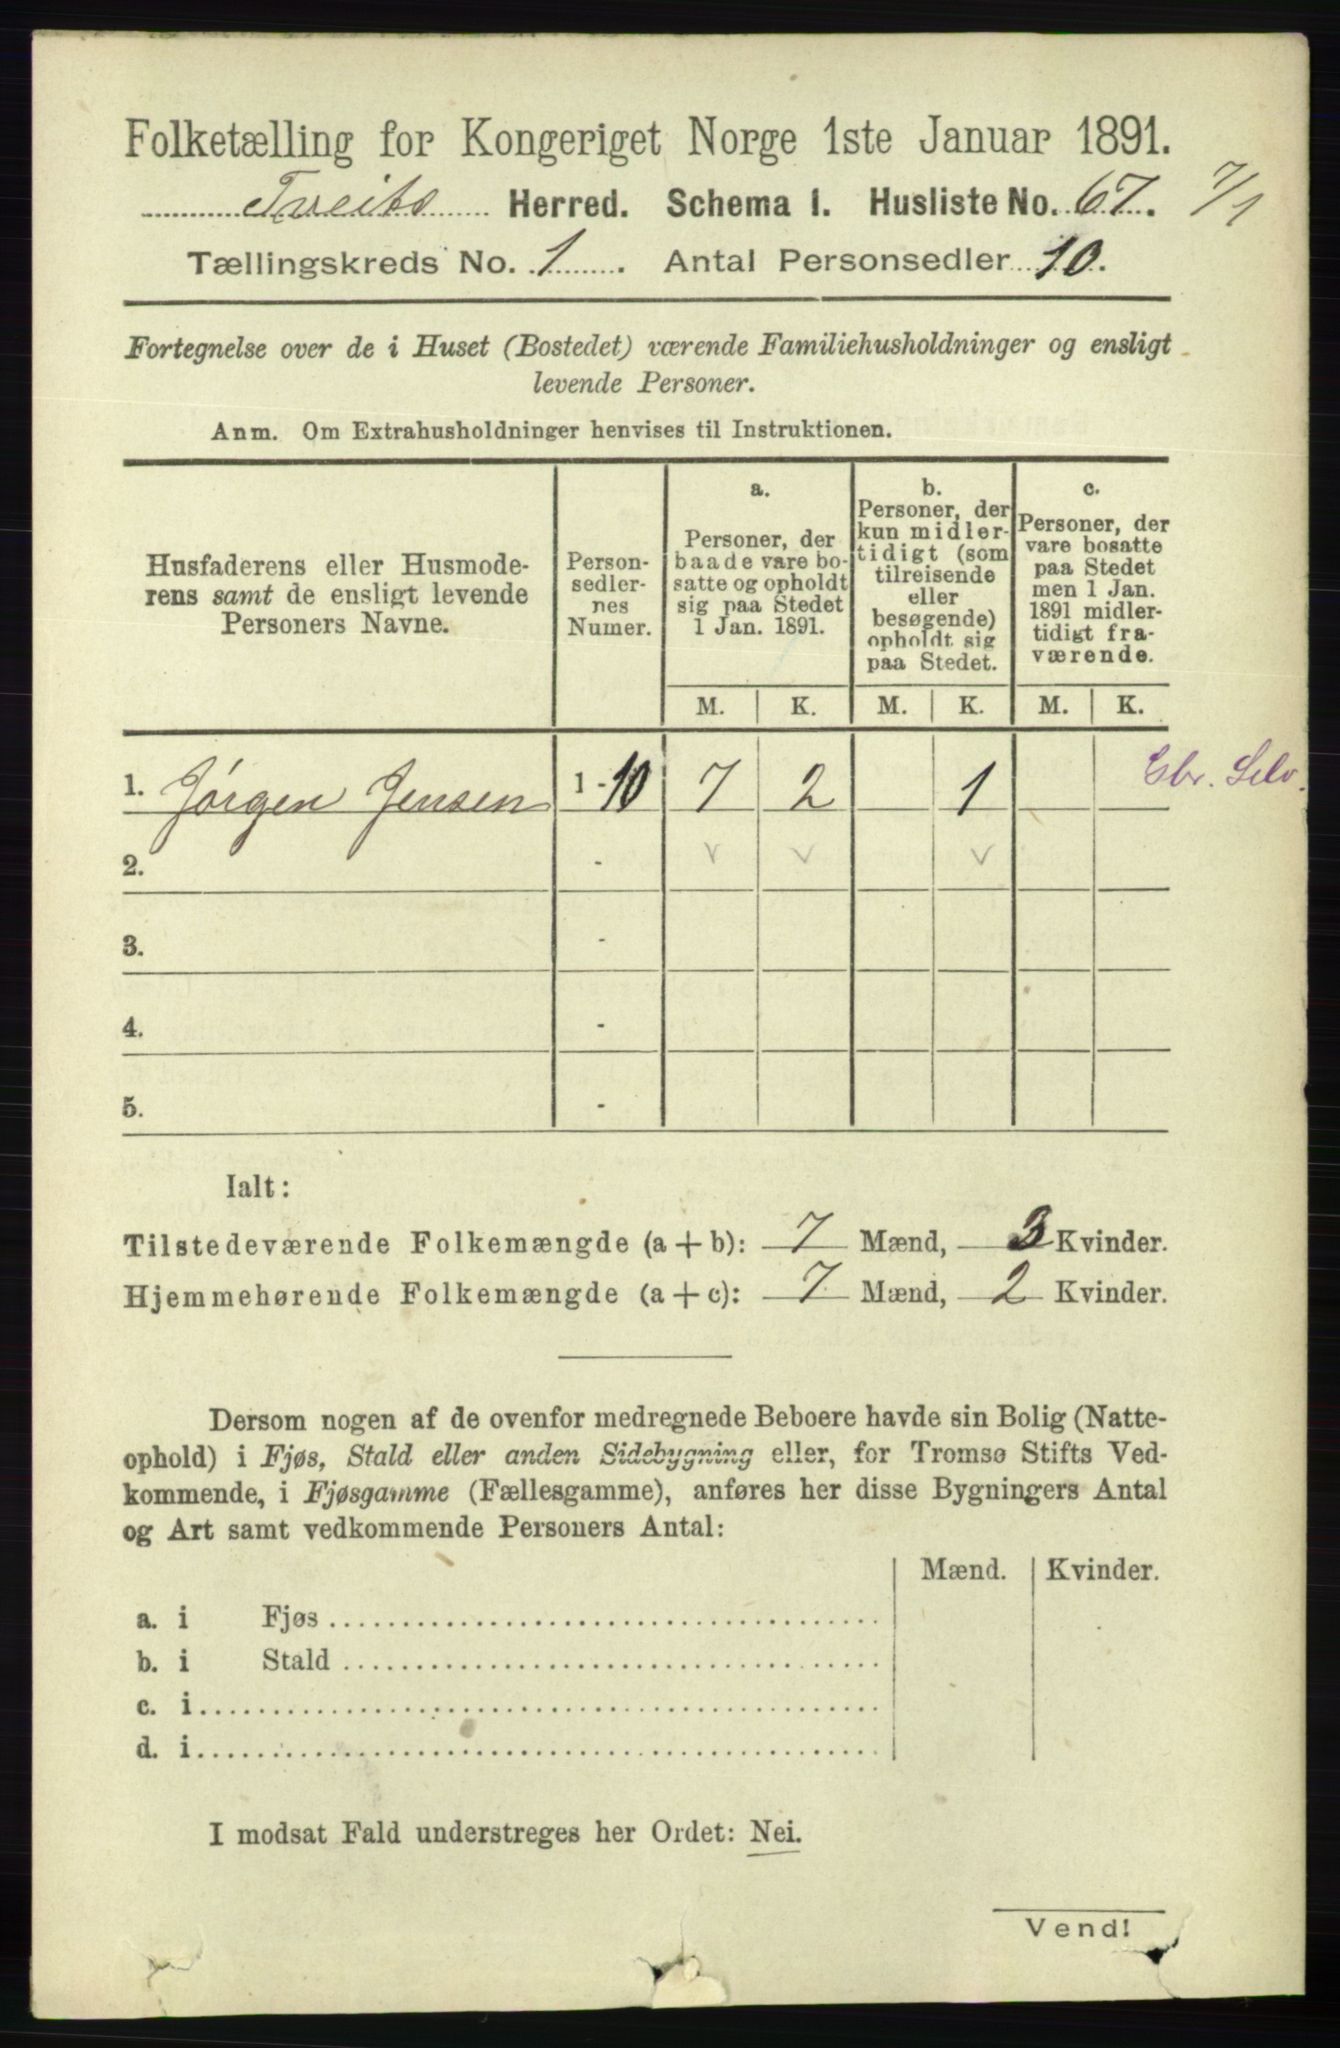 Folketælling for Kongeriget Norge 1ste Januar 1891.
Tveits Herred. Schema I. Husliste No. 67. 7/1
Tællingskreds No. 1. Antal Personsedler 10.
Fortegnelse over de i Huset (Bostedet) værende Familiehusholdninger og ensligt
levende Personer.
Anm. Om Extrahusholdninger henvises til Instruktionen.
Husfaderens eller Husmode-
rens samt de ensligt levende
Personers Navne.
Person-
sedler-
nes
Numer.
a.
Personer, der
baade vare bo-
satte og opholdt
sig paa Stedet
1 Jan. 1891.
b.
Personer, der
kun midler-
tidigt (som
tilreisende
eller
besøgende)
opholdt sig
paa Stedet.
c.
Personer, der
vare bosatte
paa Stedet
men 1 Jan.
1891 midler-
tidigt fra-
værende.
M. K. M. K. M. K.
1. Jørgen Jensen 1 - 10 7 2 1
2. - v v v
3. -
4. -
5. -
Ialt:
Tilstedeværende Folkemængde (a + b): 7 Mænd, 3 Kvinder.
Hjemmehørende Folkemængde (a + c): 7 Mænd, 2 Kvinder.
Dersom nogen af de ovenfor medregnede Beboere havde sin Bolig (Natte-
ophold) i Fjøs, Stald eller anden Sidebygning eller, for Tromsø Stifts Ved-
kommende, i Fjøsgamme (Fællesgamme), anføres her disse Bygningers Antal
og Art samt vedkommende Personers Antal:
Mænd. Kvinder.
a. i Fjøs
b. i Stald
c. i
d. i
I modsat Fald understreges her Ordet: Nei.
Vend!